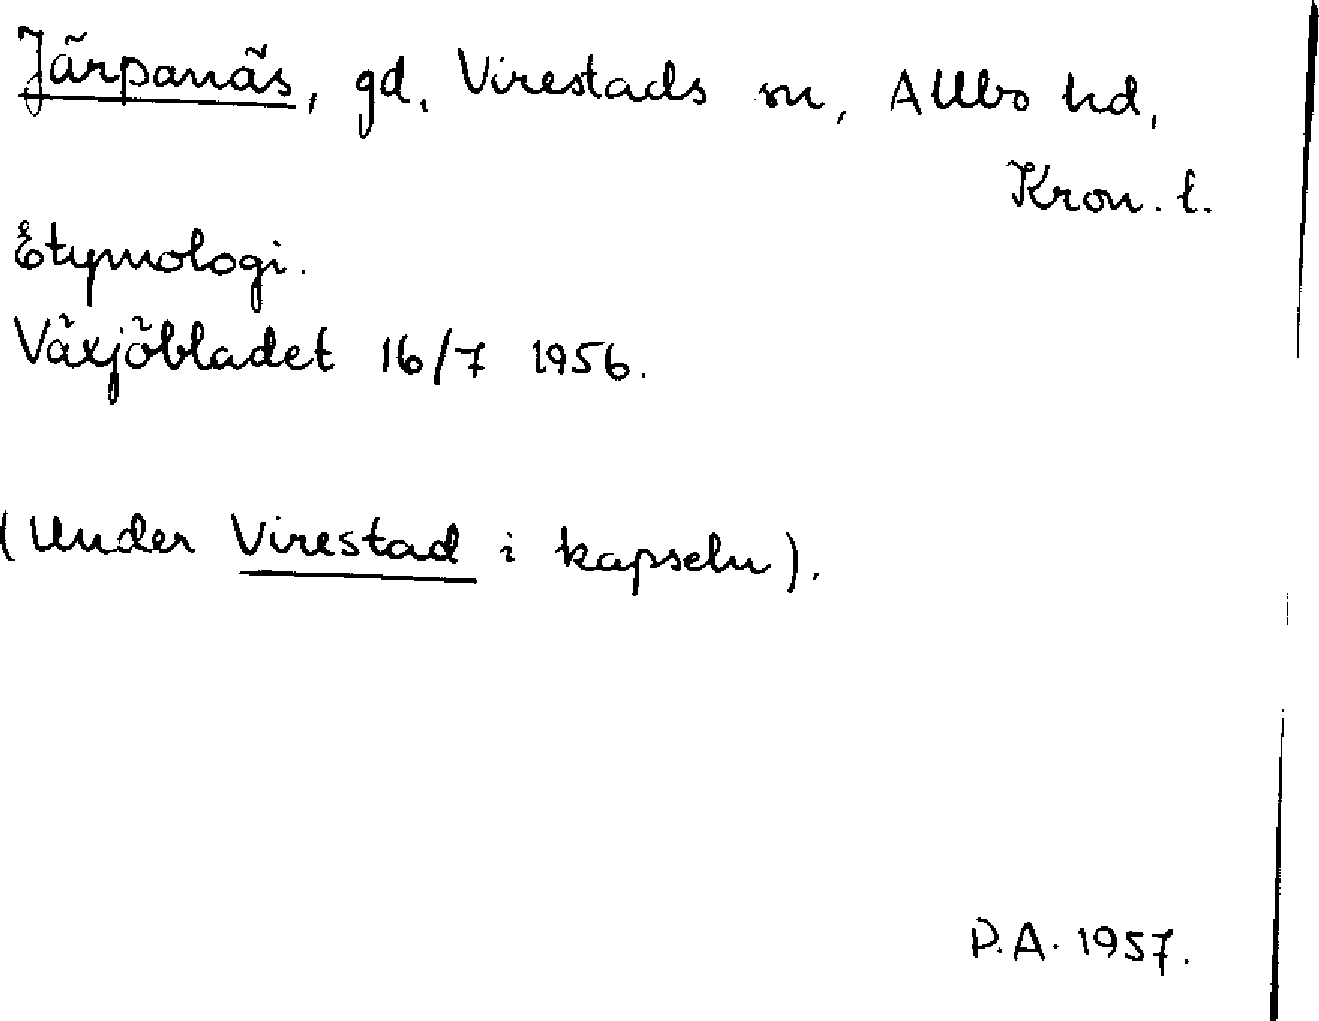 Järpanäs, gd, Virestads sn, Allbo hd,
Kron. l.
Etymologi.
Växjöbladet 16/7 1956.
(Under Virestad i kapseln).
P.A. 1957.